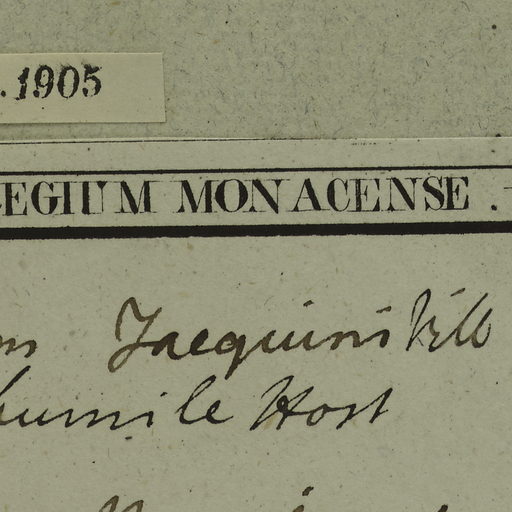 .1905
EGIUM MONACENSE.
Jacquini Vill
humile Host